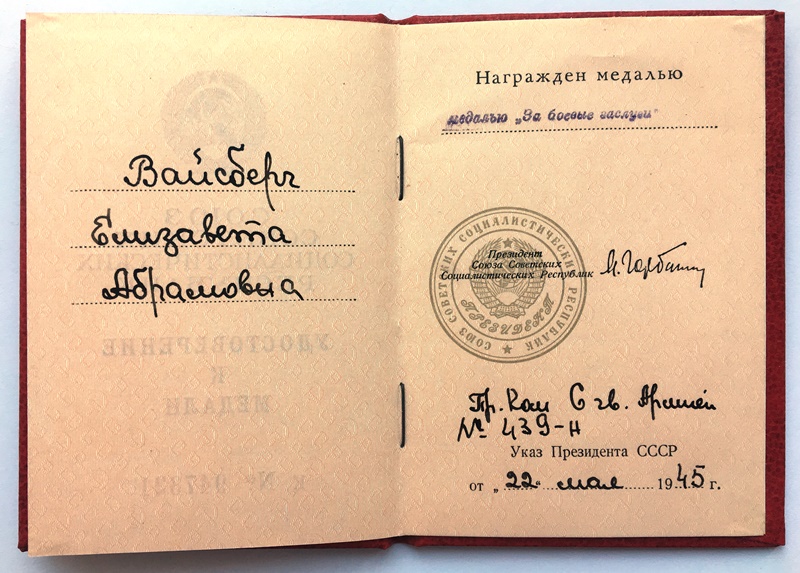 Вайсберг
Елизавета
Абрамовна
Награжден медалью
медалью „За боевые заслуги"
СОЮЗ СОВЕТСКИХ СОЦИАЛИСТИЧЕСКИХ РЕСПУБЛИК
ПРЕЗИДЕНТ
Президент
Союза Советских
Социалистических Республик
М. Горбачев
Пр. Ком 6 гв. Армией
№ 439-н
Указ Президента СССР
от „22" мая 1945 г.
СОЮЗ
СОВЕТСКИХ
СОЦИАЛИСТИЧЕСКИХ
РЕСПУБЛИК
УДОСТОВЕРЕНИЕ
К
МЕДАЛИ